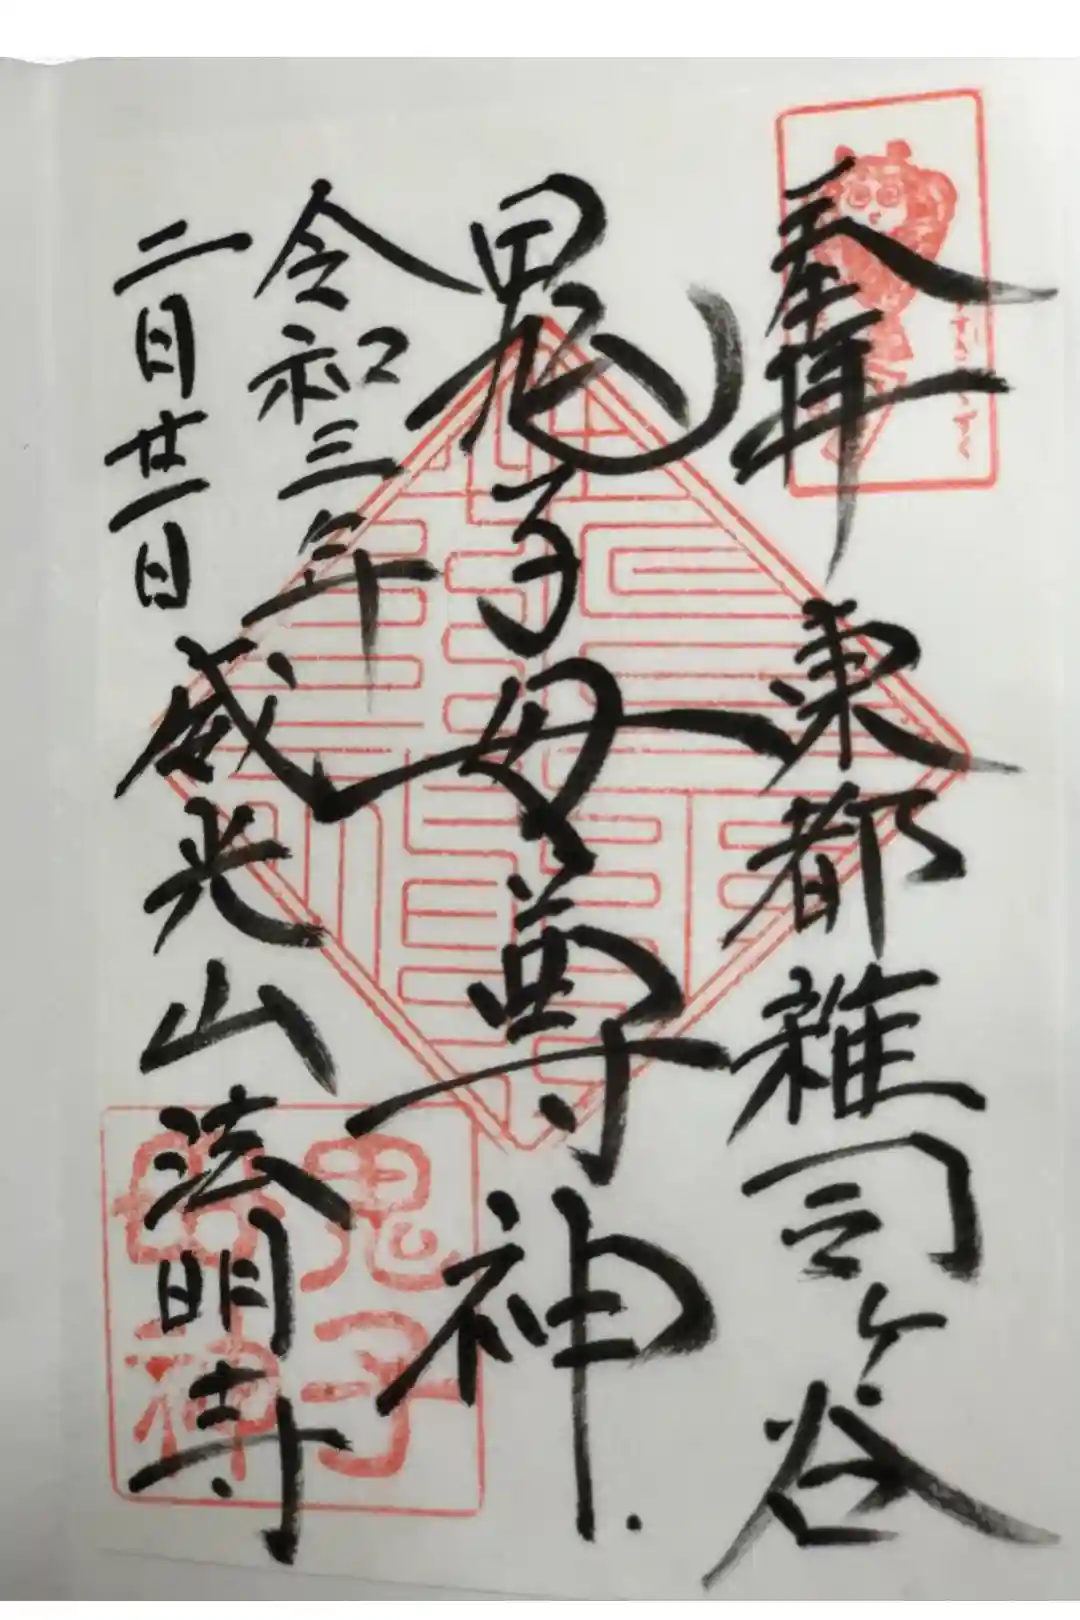 奉拝
東都雑司ヶ谷
鬼子母尊神
令和三年
二月廿一日
威光山法明寺
すすきみみずく
鬼子
母神